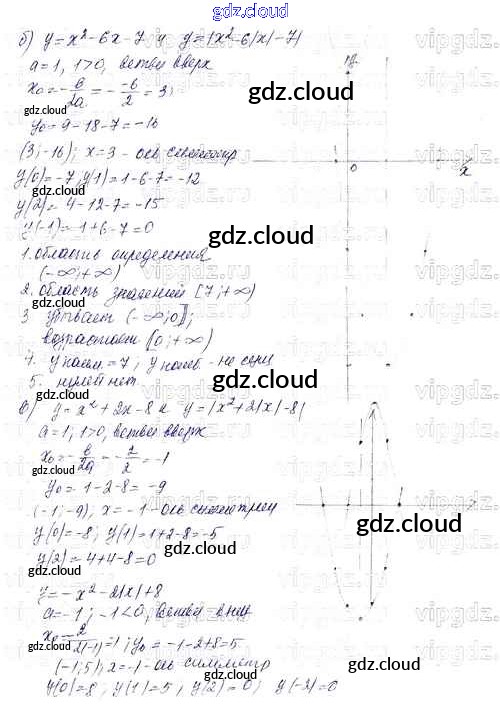 gdz.cloud
б) y=x²-6x-7 и y=|x²-6|x|-7|
a=1, 1>0, ветви вверх
x₀=-b/2a=-(-6)/2=3;
y₀=9-18-7=-16
(3;-16); x=3-ось симметр
y(0)=-7; y(1)=1-6-7=-12
y(2)=4-12-7=-15
y(-1)=1+6-7=0
1. область определения
(-∞;+∞)
2. область значений [7;+∞)
3 убывает (-∞;0];
возрастает [0;+∞)
4. y наим.=7; y наиб.-не сущ
5. нулей нет.
в) y=x²+2x-8 и y=|x²+2|x|-8|
a=1; 1>0, ветви вверх
x₀=-b/2a=-2/2=-1
y₀=1-2-8=-9
(-1;-9), x=-1-ось симметрии
y(0)=-8; y(1)=1+2-8=-5
y(2)=4+4-8=0
y=-x²-2|x|+8
a=-1; -1<0, ветви вниз
x₀=2/2(-1)=1; y₀=-1-2+8=5
(-1;5), x=-1-ось симметр
y(0)=8; y(1)=5; y(2)=0; y(-2)=0
0
x
gdz.cloud
gdz.cloud
gdz.cloud
gdz.cloud
gdz.cloud
gdz.cloud
gdz.cloud
gdz.cloud
gdz.cloud
gdz.cloud
gdz.cloud